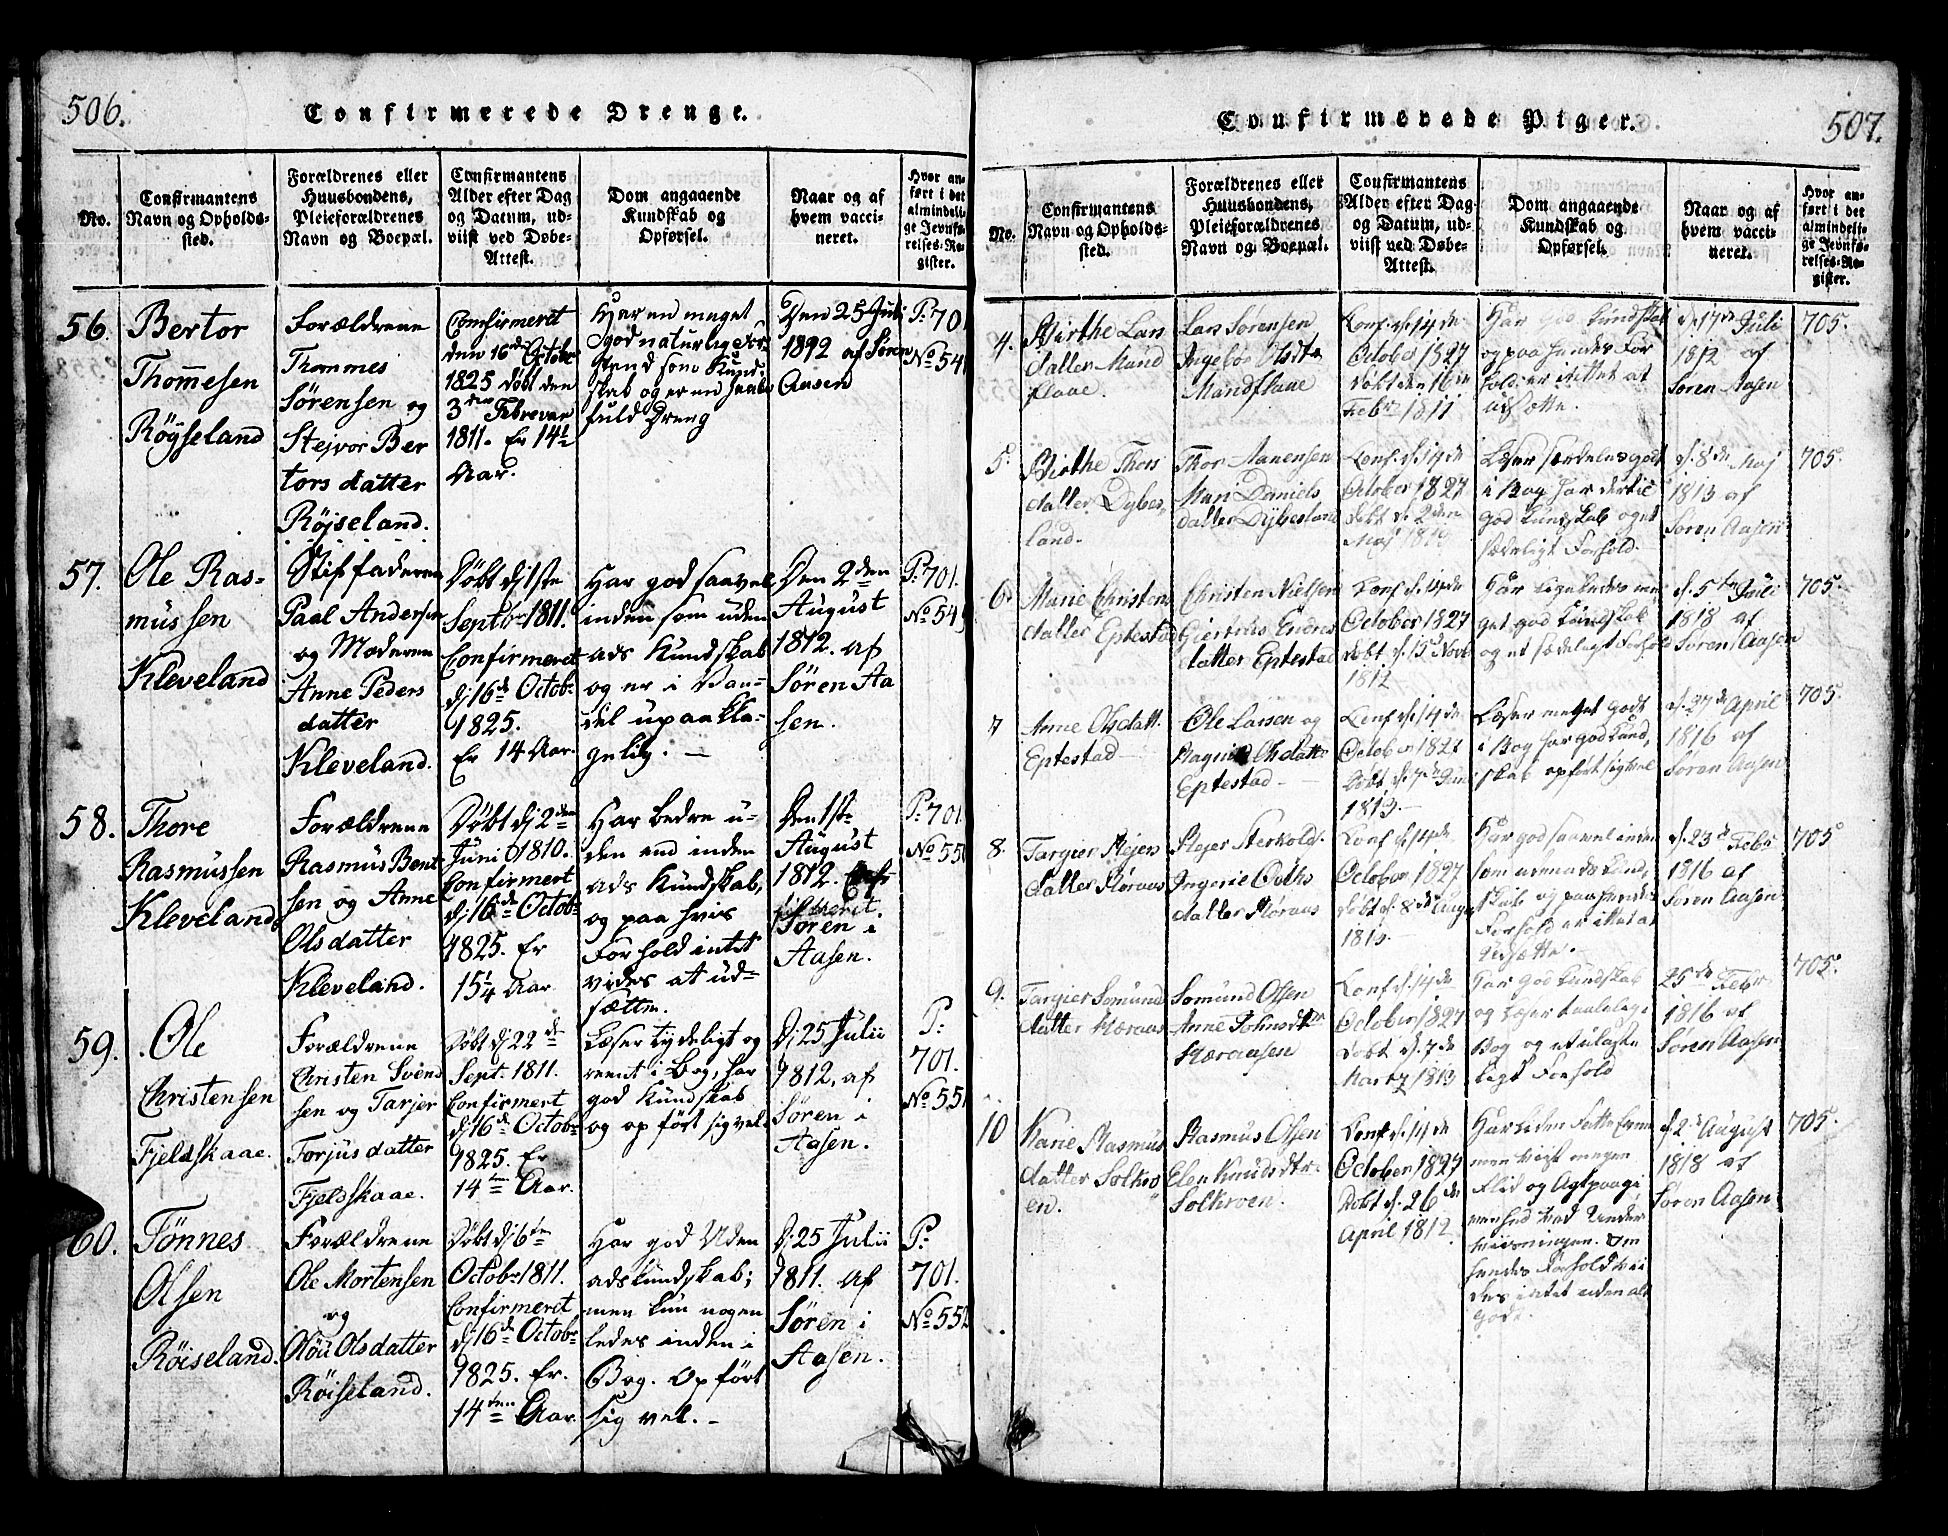 506.
Confirmerede Drenge.
No.
Confirmantens
Navn og Opholds-
sted.
Forældrenes eller
Huusbondens,
Pleieforældrenes
Navn og Boepæl.
Confirmantens
Alder efter Dag
og Datum, ud-
viist ved Døbe-
Attest.
Dom angaaende
Kundskab og
Opførsel.
Naar og af
hvem vacci-
neret.
Hvor an-
ført i det
almindeli-
ge Jevnfø-
relses-Re-
gister.
56.
Bertor
Thommesen
Röyseland
Forældrene
Thommes
Sörensen og
Stejvor Ber
tors datter
Röjseland.
Confirmeret
den 16de Octobr
1825 Döbt den
3den Februar
1811. Er 14 1/2
Aar.
Har en meget
god naturlig For
stand som Kund-
skab og er en haab
fuld Dreng
Den 25 Juli
1812 af Søren
Aasen
P: 701
No 54
57.
Ole Ras-
mussen
Kleveland
Stiffaderen
Paal Andersen
og Moderen
Anne Peders
datter
Kleveland.
Döbt d. 1ste
Septbr 1811.
Confirmeret
d. 16de Octobr
1825.
Er 14 Aar.
Har god saavel
inden som uden
ads Kundskab
og er i Van-
del upaakla-
gelig. —
Den 2den
August
1812. af
Søren Aa
sen.
P: 701.
No 549
58.
Thore
Rasmussen
Kleveland
Forældrene
Rasmus Bent
sen og Anne
Olsdatter
Kleveland.
Döbt d. 2den
Juni 1810.
Confirmert
d. 16de Octobr
1825. Er
15 1/4 Aar
Har bedre u-
den end inden
ads Kundskab,
og paa hvis
Forhold intet
vides at ud-
sætte.
Den 1ste
August
1812. af
Søren i
Aasen.
P: 701
No 550
59.
Ole
Christensen
Fjeldskaae.
Forældrene
Christen Svend
sen og Tarjer
Torjusdatter
Fjeldskaae.
Döbt d. 22de
Sept. 1811.
Confirmert
d. 16de Octobr
1825. Er
14 Aar.
Læser tydeligt og
reent i Bog, har
god Kundskab
og opført sig vel.
D. 25 Julii
1812, af
Søren i
Aasen.
P:
701.
No 551
60.
Tønnes
Olsen
Röiseland.
Forældrene
Ole Mortensen
og
Olsdatter
Röiseland.
Döbt d. 6te
Octobr 1811.
Confirmeret
d. 16de Octobr
1825. Er.
14 Aar.
Har god Uden
adskundskab;
men kun nogen
ledes inden i
Bog. Opført
sig vel. -
D. 25 Julii
1811. af
Søren i
Aasen.
P:
701.
No 552
507.
Confirmerede Piger.
No.
Confirmantens
Navn og Opholds-
sted.
Forældrenes eller
Huusbondens,
Pleieforældrenes
Navn og Boepæl.
Confirmantens
Alder efter Dag
og Datum, ud-
viist ved Døbe-
Attest.
Dom angaaende
Kundskab og
Opførsel.
Naar og af
hvem vacci-
neret.
Hvor an-
ført i det
almindeli-
ge Jevnfø-
relses-Re-
gister.
4.
Birthe Lars
datter Mand
flaae.
Lars Sørensen
Ingebor Olsdtr
Mandflaae
Conf. d. 14de
October 1827
Döbt den 16de
Febr 1811
Har god Kundskab
og paa hendes For
hold er intet at
udsætte.
d. 17de Juli
1812 af
Søren Aasen
705.
5.
Birthe Thors
datter Dybes
land.
Thor Aanensen
Mari Daniels
datter Dybesland
Conf. d. 14de
October 1827
döbt d. 2den
Maj
Læser særdeles godt
i Bog har dertil
god Kundskab og et
sædeligt Forhold.
d. 8de Maj
1813 af
Søren Aasen
705.
6.
Marie Christens
datter Eptestad
Christen Nielsen
Giertrus Endres
datter Eptestad
Conf d. 14de
October 1827
döbt d. 15de Novb
1812
Har ligeledes me
get god Kundskab
og et sædeligt Forhold
d. 5te Juli
1818 af
Søren Aasen
705.
7
Anne Olsdatt.
Eptestad —
Ole Larsen og
Olsdatt
Eptestad —
Conf. d. 14de
October 1827
Döbt d. 7de Juni
1813. —
Læser meget godt
i Bog har god Kund,
skab opført sig vel
d. 27de April
1816 af
Søren Aasen
705.
8.
Targier Stejers
datter
Stejer
Ingerie
datter
Conf. d. 14de
October 1827
döbt d. 8de Augu
1813.
Har god saavel inden
som udenads Kund,
skab og paa hendes
Forhold er intet at
udsætte. —
d. 23de Febr
1816 af
Søren Aasen.
705
9.
Targier Somund
datter
Somund Olsen
Anne Johnsdtr
Conf d. 14de
October 1827
Döbt d. 7de
Martz 1813
Har god Kundskab
og læser taalelig i
Bog og et ulaste
ligt Forhold
25de Febr
1816 af
Søren Aasen
705.
10
Karie Rasmus
datter Solkro
en.
Rasmus Olsen
Elen Knudsdtr.
Solkroen.
Conf. d. 14de
October 1827
Döbt d. 26de
April 1812
Har liden Fatte Evne
men viist megen
Flid og Agtpaagi
venhed ved Under
viisningen. Om
hendes Forhold vii
des intet uden alt
godt.
d. 2de August
1818 af
Søren Aasen
705.